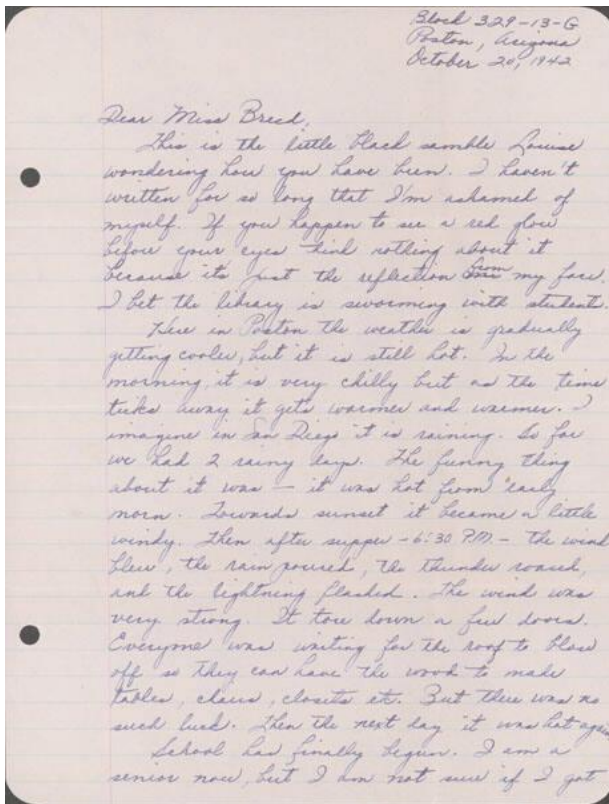 Block 329-13-G
Poston, Arizona
October 20, 1942
Dear Miss Breed,
This is the little black samble Louise
wondering how you have been. I haven't
written for so long that I'm ashamed of
myself. If you happen to see a red glow
before your eyes think nothing about it
because its just the reflection from my face.
I bet the library is sworming with students.
Here in Poston the weather is gradually
getting cooler, but it is still hot. In the
morning, it is very chilly but as the time
ticks away it gets warmer and warmer. I
imagine in San Diego it is raining. So far
we had 2 rainy days. The funny thing
about it was — it was hot from early
morn. Towards sunset it became a little
windy. Then after supper - 6:30 P.M. - the wind
blew, the rain poured, the thunder roared,
and the lightning flashed. The wind was
very strong. It tore down a few doors.
Everyone was waiting for the roof to blow
off so they can have the wood to make
tables, chairs, closets etc. But there was no
such luck. Then the next day it was hot again
School has finally begun. I am a
senior now, but I am not sure if I got